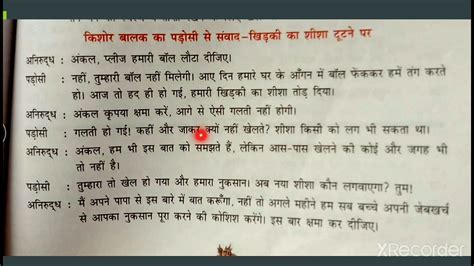 किशोर बालक का पड़ोसी से संवाद-खिड़की का शीशा टूटने पर
अनिरुद्ध : अंकल, प्लीज हमारी बॉल लौटा दीजिए।
पड़ोसी : नहीं, तुम्हारी बॉल नहीं मिलेगी। आए दिन हमारे घर के आँगन में बॉल फेंककर हमें तंग करते
हो। आज तो हद ही हो गई, हमारी खिड़की का शीशा तोड़ दिया।
अनिरुद्ध : अंकल कृपया क्षमा करें, आगे से ऐसी गलती नहीं होगी।
पड़ोसी : गलती हो गई! कहीं और जाकर क्यों नहीं खेलते? शीशा किसी को लग भी सकता था।
अनिरुद्ध : अंकल, हम भी इस बात को समझते हैं, लेकिन आस-पास खेलने की कोई और जगह भी
तो नहीं है।
पड़ोसी : तुम्हारा तो खेल हो गया और हमारा नुकसान। अब नया शीशा कौन लगवाएगा? तुम!
अनिरुद्ध : मैं अपने पापा से इस बारे में बात करूँगा, नहीं तो अगले महीने हम सब बच्चे अपनी जेबखर्च
से आपका नुकसान पूरा करने की कोशिश करेंगे। इस बार क्षमा कर दीजिए।
XRECORDER